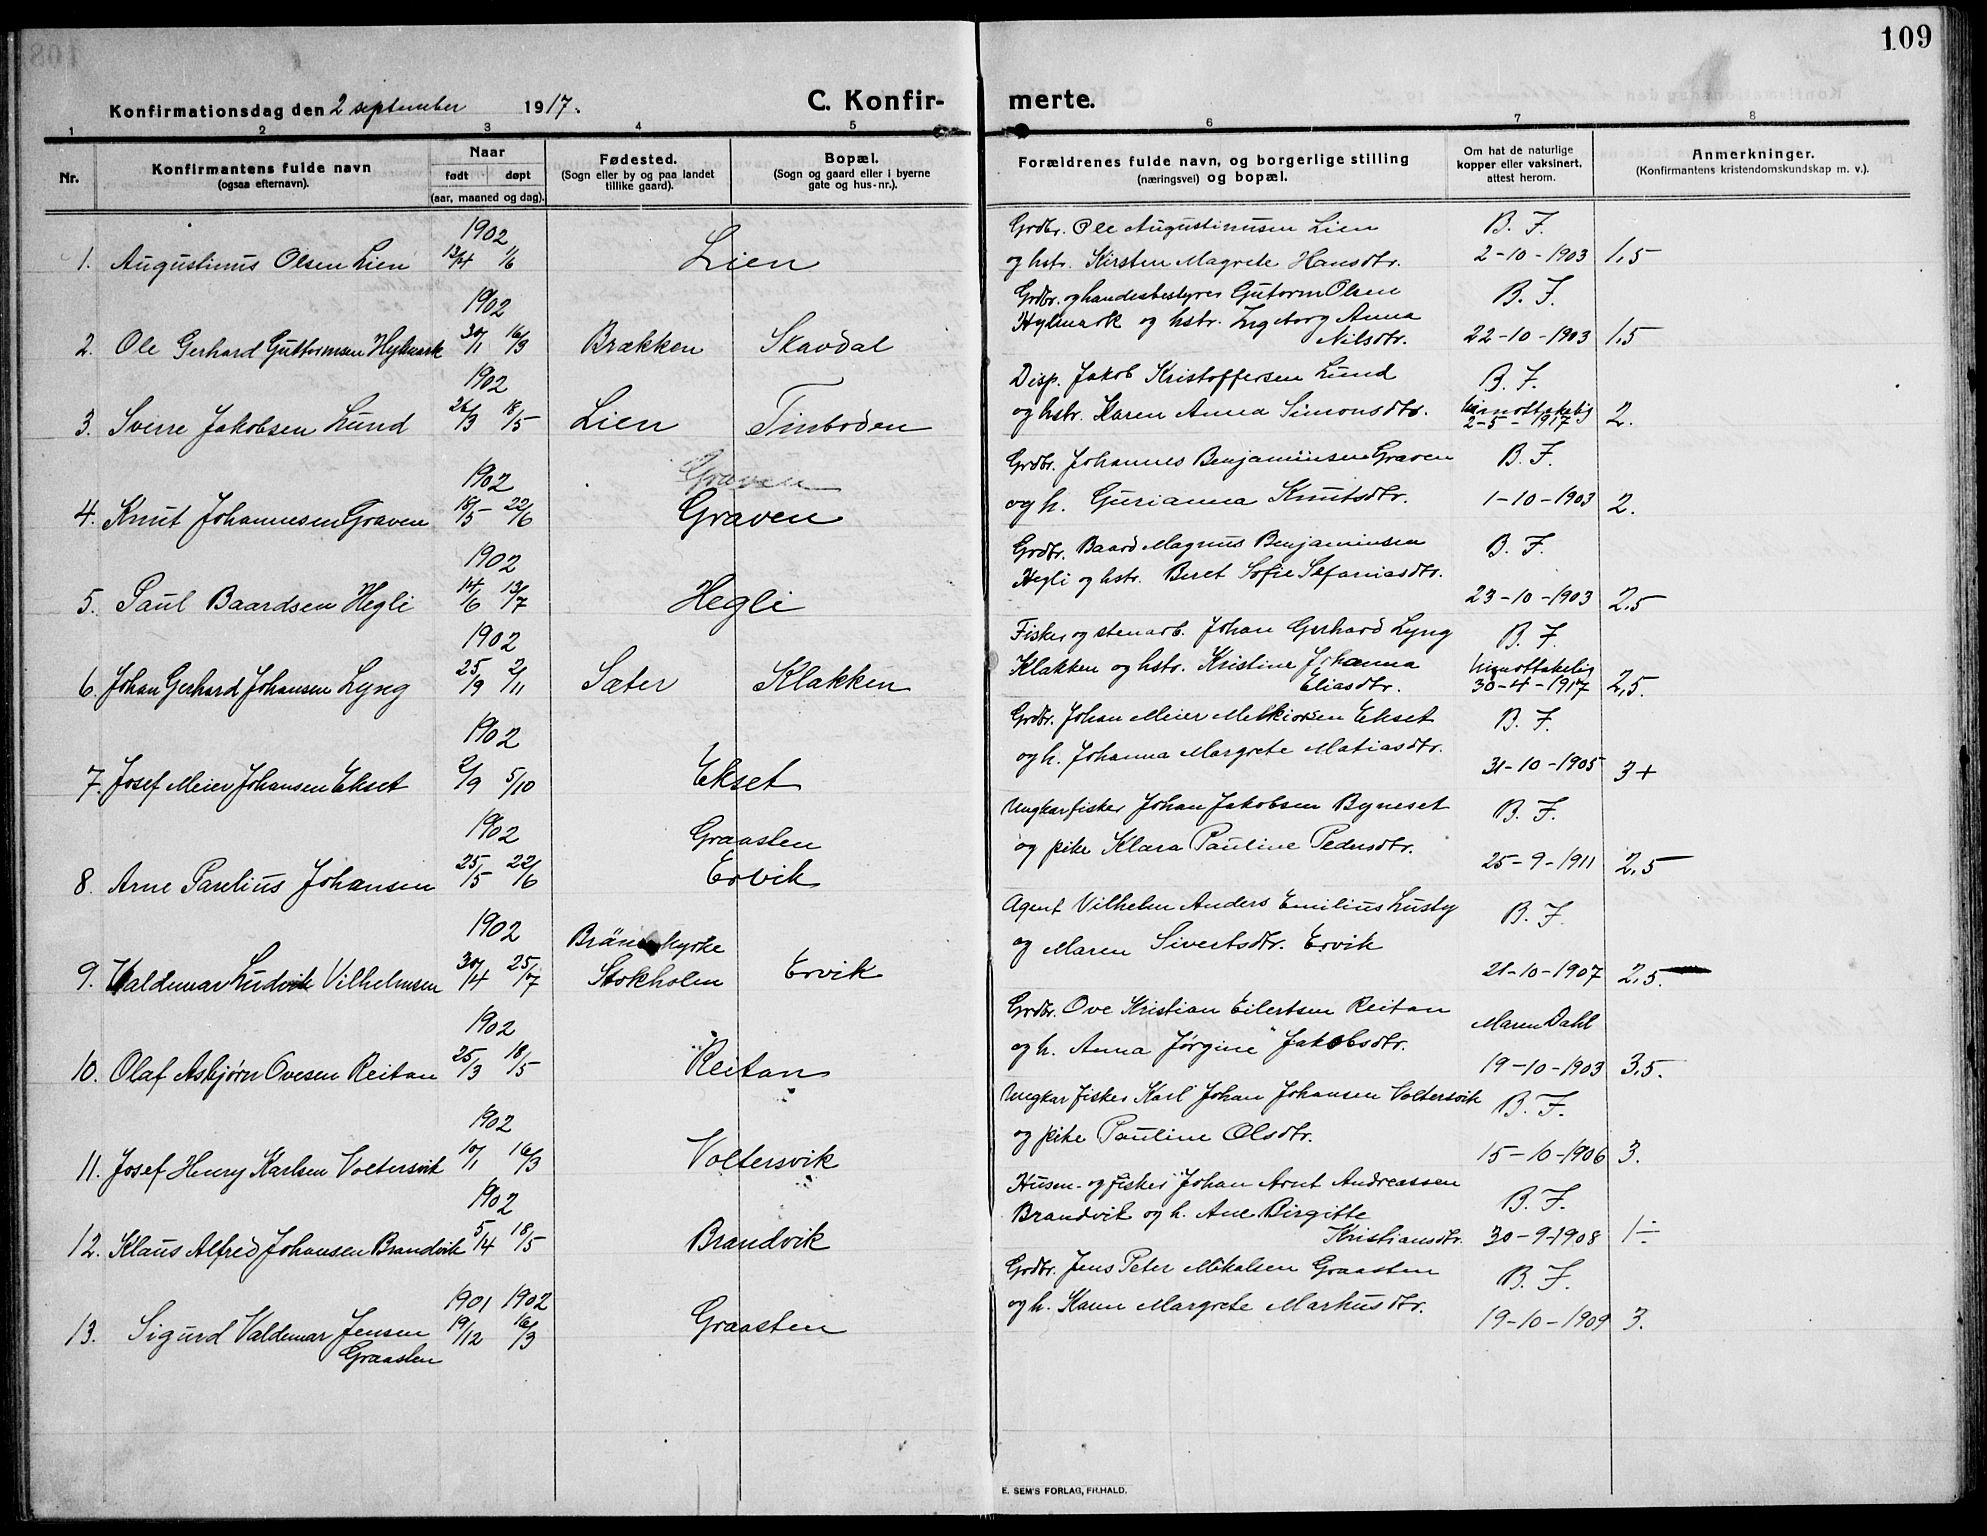 109
Konfirmationsdag den 2 september 1917.
C. Konfirmerte.
1 2 3 4 5 6 7 8
Nr.
Konfirmantens fulde navn
(ogsaa efternavn).
Naar
født døpt
(aar, maaned og dag).
Fødested.
(Sogn eller by og paa landet
tillike gaard).
Bopæl.
(Sogn og gaard eller i byerne
gate og hus-nr.).
Forældrenes fulde navn, og borgerlige stilling
(næringsvei) og bopæl.
Om hat de naturlige
kopper eller vaksinert,
attest herom.
Anmerkninger.
(Konfirmantens kristendomskundskap m. v.).
1902
1. Augustinus Olsen Lien 13/4 1/6 Lien
Grdbr. Ole Augustinusen Lien B. F.
og hstr. Kirsten Magrete Hansdtr. 2-10-1903 1,5
1902
2. Ole Gerhard Guttormsen Hylmark 30/1 16/3 Brækken Skavdal
Grdbr. og handesbestyrer Gutorm Olsen B. F.
Hylmark og hstr. Ingeborg Anna
Nilsdtr. 22-10-1903 1,5
1902
3. Sverre Jakobsen Lund 26/3 18/5 Lien Tinboden
Disp. Jakob Kristoffersen Lund B. F.
og hstr. Karen Anna Simonsdtr. uimottakelig
2-5-1917 2.
1902 Graven
4. Knut Johannesen Graven 18/5 22/6 Graven
Grdbr. Johannes Benjaminsen Graven B. F.
og h. Gurianna Knutsdtr. 1-10-1903 2.
1902
5. Paul Baardsen Hegli 14/6 13/7 Hegli
Grdbr. Baard Magnus Benjaminsen B. F.
Hegli og hstr. Beret Sofie Sefaniasdtr.
23-10-1903 2,5
1902
6. Johan Gerhard Johansen Lyng 25/9 2/11 Sæter Klakken
Fisker og stenarb. Johan Gerhard Lyng B. F.
Klakken og hstr. Kristine Johanna uimottakelig
Eliasdtr. 30-4-1917 2,5.
1902
7. Josef Meier Johansen Ekset 2/9 5/10 Ekset
Grdbr. Johan Meier Melkiorsen Ekset B. F.
og h. Johanna Margrete Matiasdtr.
31-10-1905 3+
1902 Graasten
8. Arne Parelius Johansen 25/5 22/6 Ervik
Ungkar fisker Johan Jakobsen Byneset B. F.
og pike Klara Pauline Pedersdtr.
25-9-1911 2,5
1902 Brännkyrke
9. Valdemar Ludvik Vilhelmsen 30/4 25/07 Stokholm Ervik
Agent Vilhelm Anders Emilius Lusty B. F.
og Maren Sivertsdtr. Ervik
21-10-1907 2,5
1902
10. Olaf Asbjørn Ovesen Reitan 25/3 18/5 Reitan
Grdbr. Ove Kristian Eilertsen Reitan Maren Dahl
og h. Anna Jørgine Jakobsdtr.
19-10-1903 3,5.
1902
11. Josef Henry Karlsen Voltersvik 10/1 16/3 Voltersvik
Ungkar fisker Karl Johan Johansen Voltersvik B. F.
og pike Pauline Olsdtr.
15-10-1906 3.
1902
12. Klaus Alfred Johansen Brandvik 5/4 18/5 Brandvik
Husm- og fisker Johan Arnt Andreassen
Brandvik og h. Ane Birgitte B. F.
Kristiansdtr. 30-9-1908 1÷
1901 1902
13. Sigurd Valdemar Jensen 19/12 16/3 Graasten
Graasten
Grdbr. Jens Peter Mikalsen Graasten B. F.
og h. Karen Margrete Markusdtr.
19-10-1909 3.
E. SEM'S FORLAG, FR.HALD.